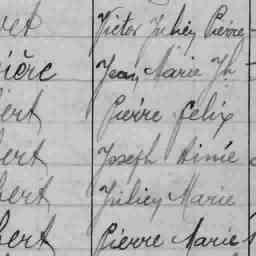 Victor Julien Pierre
ière Jean Marie Jh
bert Pierre Félix
bert Joseph Aimé
bert Julien Marie
bert Pierre Marie